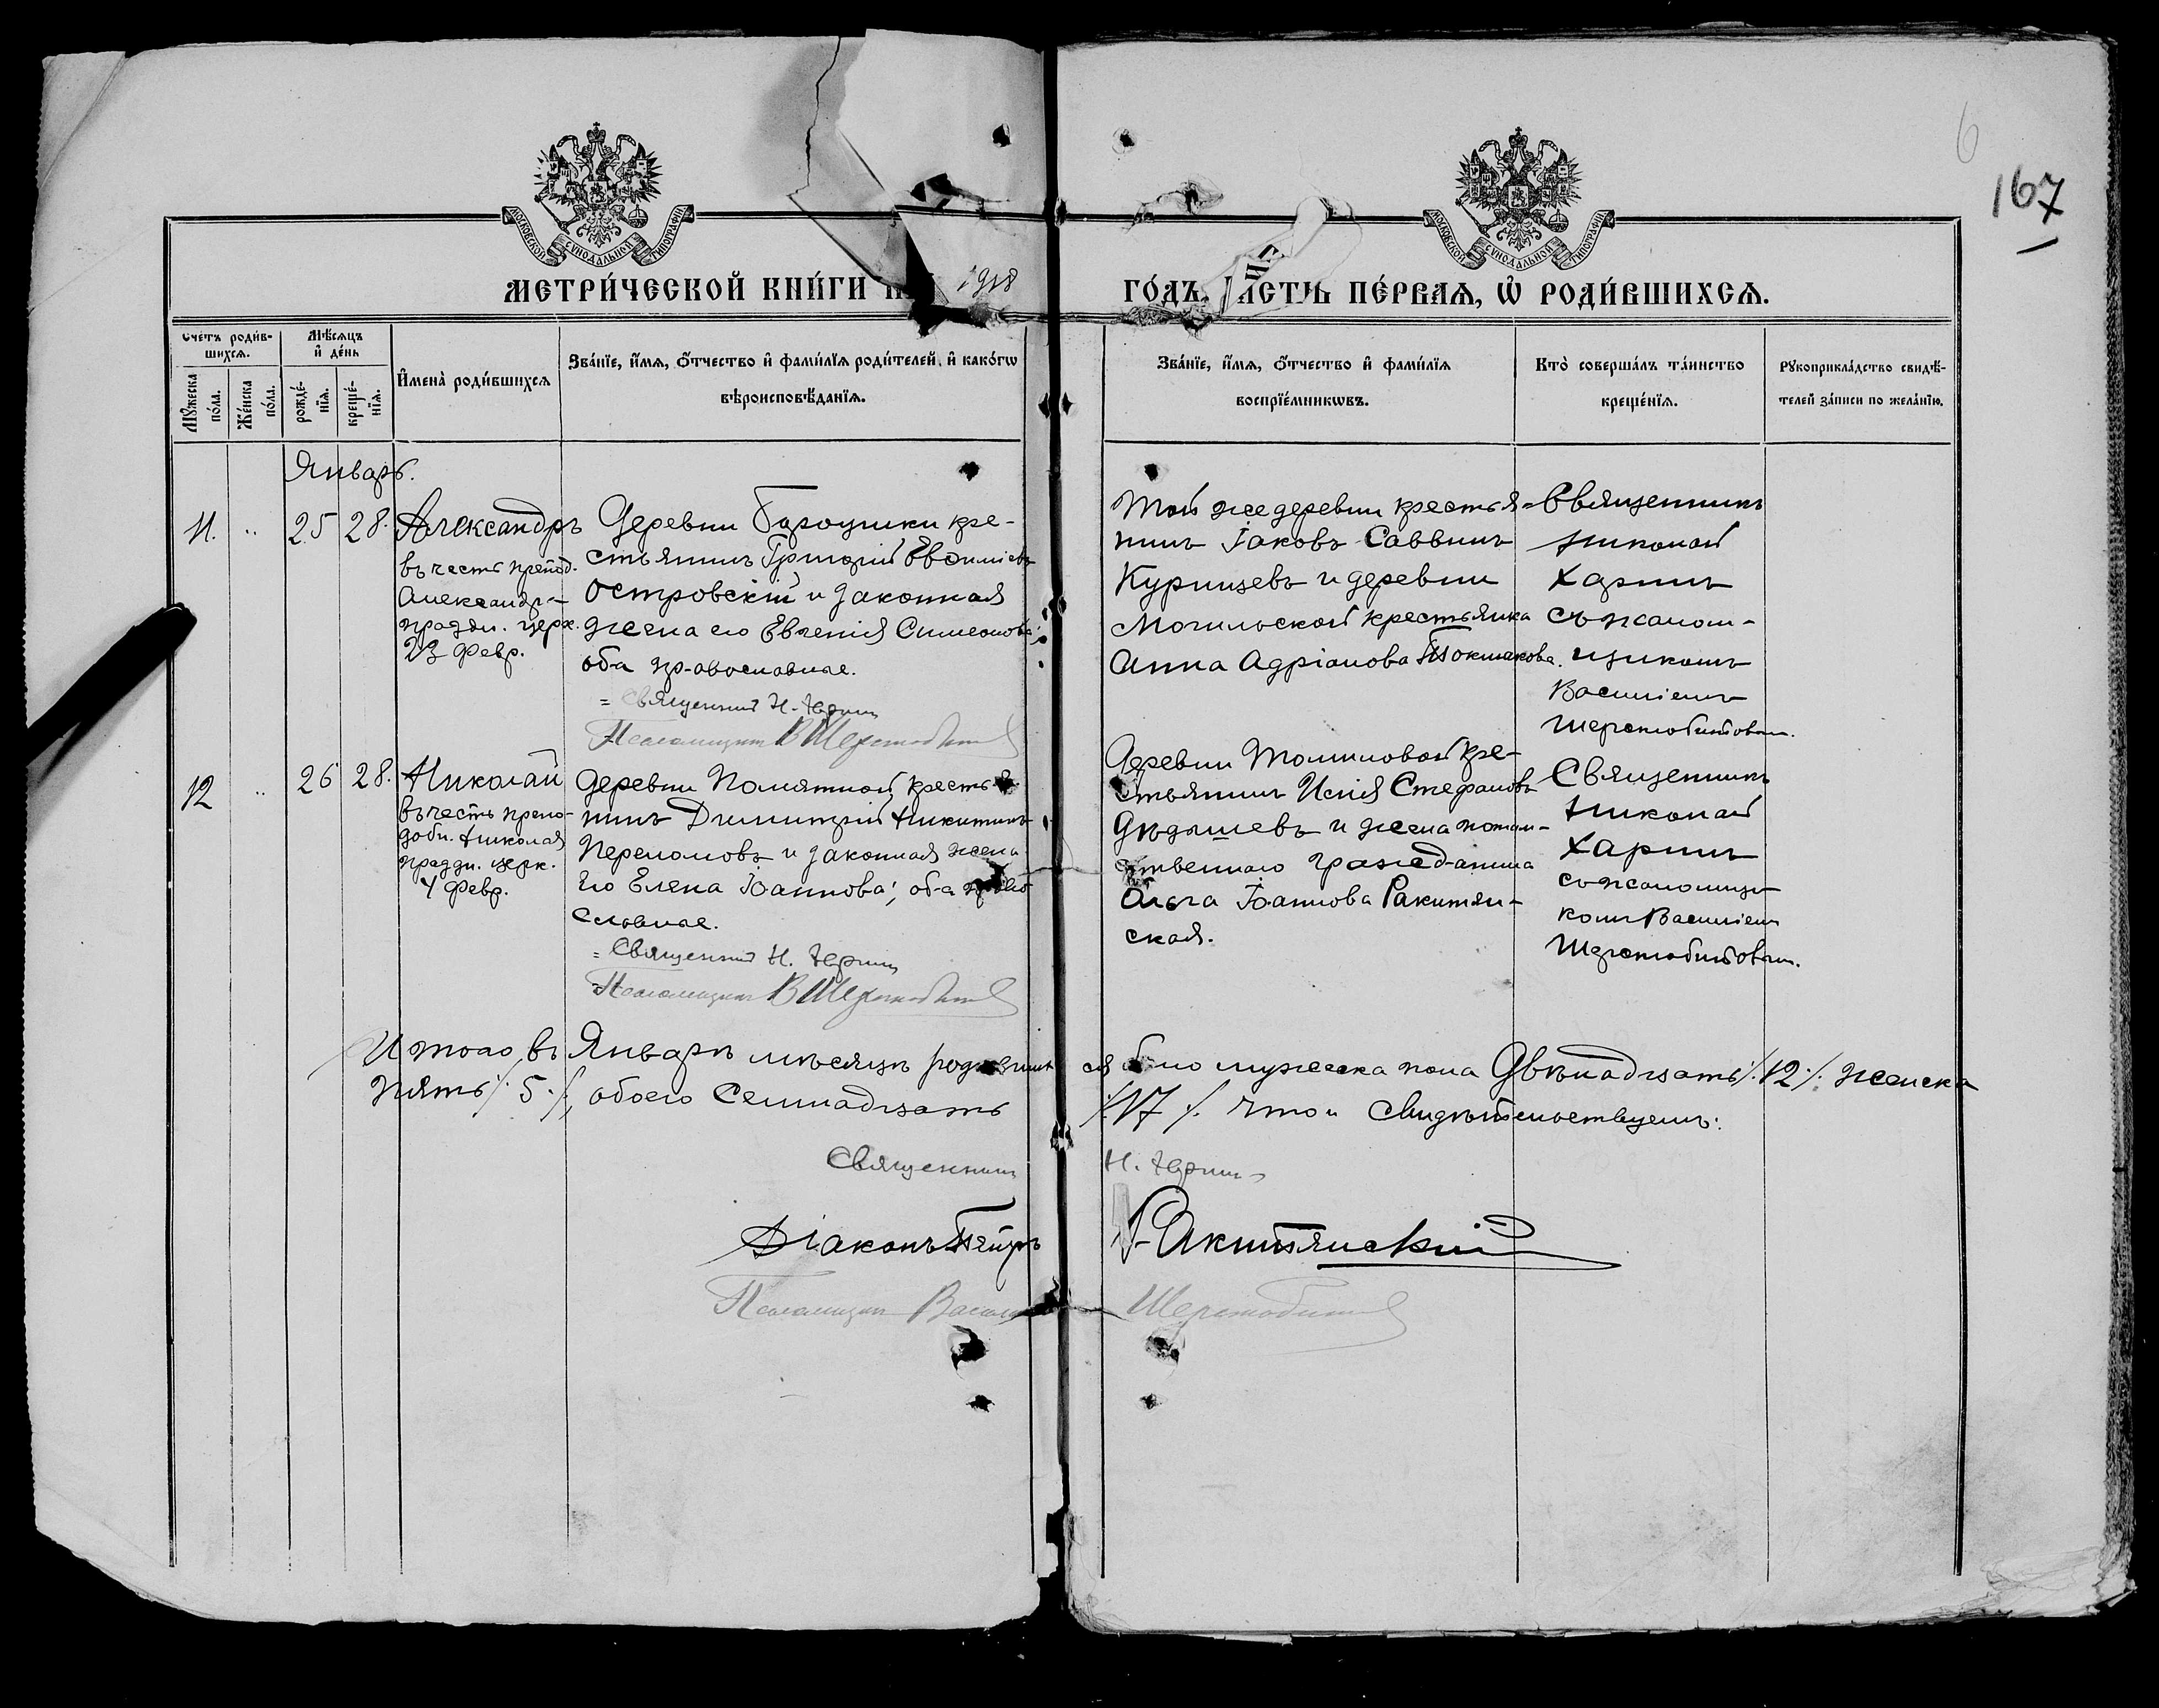 6
167
МОСКОВСКОЙ СѴНОДАЛЬНОЙ ТИПОГРАФІИ
МОСКОВСКОЙ СѴНОДАЛЬНОЙ ТИПОГРАФІИ
МЕТРИ́ЧЕСКОЙ КНИ́ГИ 1918
ГО́ДЪ, ЧАСТЬ ПЕ́РВАѦ, Ѡ҆ РОДИ́ВШИХСѦ.
Счетъ роди́вшихсѧ.
Мѣ́сѧцъ и҆ де́нь
Мꙋ́жеска по́ла.
Же́нска по́ла.
рожде́нїѧ.
креще́нїѧ.
И҆мена̀ роди́вшихсѧ
Зва́нїе, и҆́мѧ, ѻ҆́тчество и҆ фами́лїѧ роди́телей, и҆ како́гѡ
вѣроисповѣ́данїѧ.
Зва́нїе, и҆́мѧ, ѻ҆́тчество и҆ фами́лїѧ
воспрїе́мникѡвъ.
Кто̀ соверша́лъ та́инство
креще́нїѧ.
Рꙋкоприкла́дство свидѣ́-
телей за́писи по жела́нїю.
Январь.
11. „ 25 28. Александръ
въ честь препод.
Александра
праздн. церк.
23 февр.
Деревни кре-
стьянинъ Григорій Евѳиміевъ
Островскій и законная
жена его Евгенія Симеонова;
оба православные.
= Священникъ Н. Харинъ
Псаломщикъ В Шерстобитовъ
Той же деревни крестья-
нинъ Іаковъ Саввинъ
Курицевъ и деревни
Могильской крестьянка
Анна Адріанова Токмакова.
Священникъ
Николай
Харинъ
съ псалом-
щикомъ
Василіемъ
Шерстобитовым.
12 „ 26 28. Николай
въ честь препо-
добн. Николая
праздн. церк.
4 февр.
Деревни Полятной крестья-
нинъ Димитрій Никитинъ
Переломовъ и законная жена
его Елена Іоаннова; оба право
славные.
= Священникъ Н. Харинъ
Псаломщикъ В Шерстобитовъ
Деревни Томиловой кре-
стьянинъ Исаія Стефановъ
Дѣдышевъ и жена потом-
ственнаго гражданина
Ольга Іоаннова Ракитян-
ская.
Священникъ
Николай
Харинъ
съ псаломщи
комъ Василіем
Шерстобитовым.
Итого, въ Январѣ мѣсяцѣ родившихся было мужеска пола Двѣнадцать /12/. женска
пять /5./, обоего Семнадцать /17/. что и Свидѣтельствуемъ:
Священникъ Н. Харинъ
Діаконъ Петръ Ракитянскій
Псаломщикъ Василій Шерстобитовъ